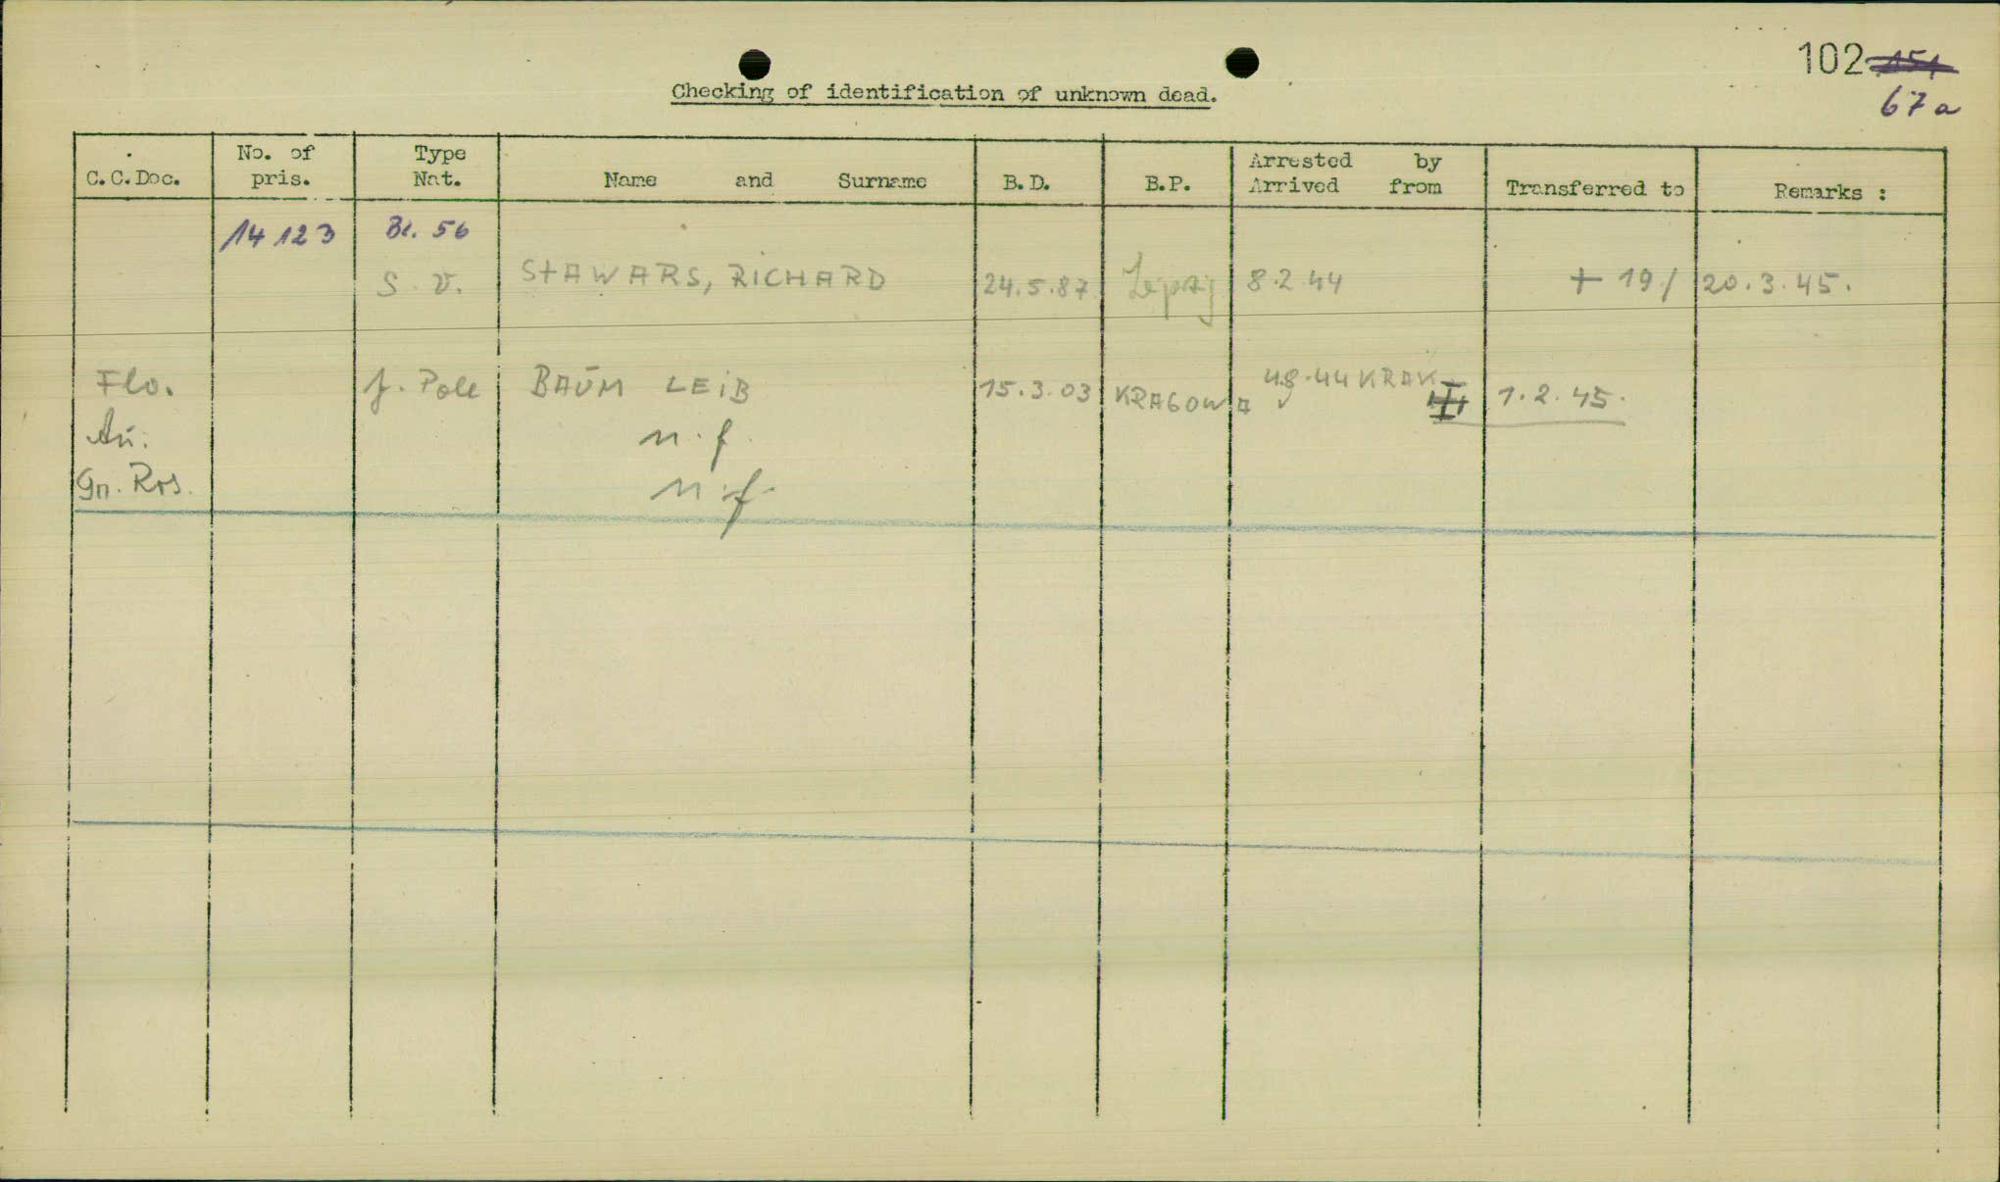 102 151
67a
Checking of identification of unknown dead.
C.C.Doc. No. of pris. Type Nat. Name and Surname B.D. B.P. Arrested by Arrived from Transferred to Remarks :
14123 Bl. 56
S. V. STAWARS, RICHARD 24.5.87 Leipzig 8.2.44 + 19/20.3.45.
Flo. j. Pole BAUM LEIB 15.3.03 KRAGOWA 4.8.44 KRAK 1.2.45.
Au. n.f.
Gn. Ros. n.f.